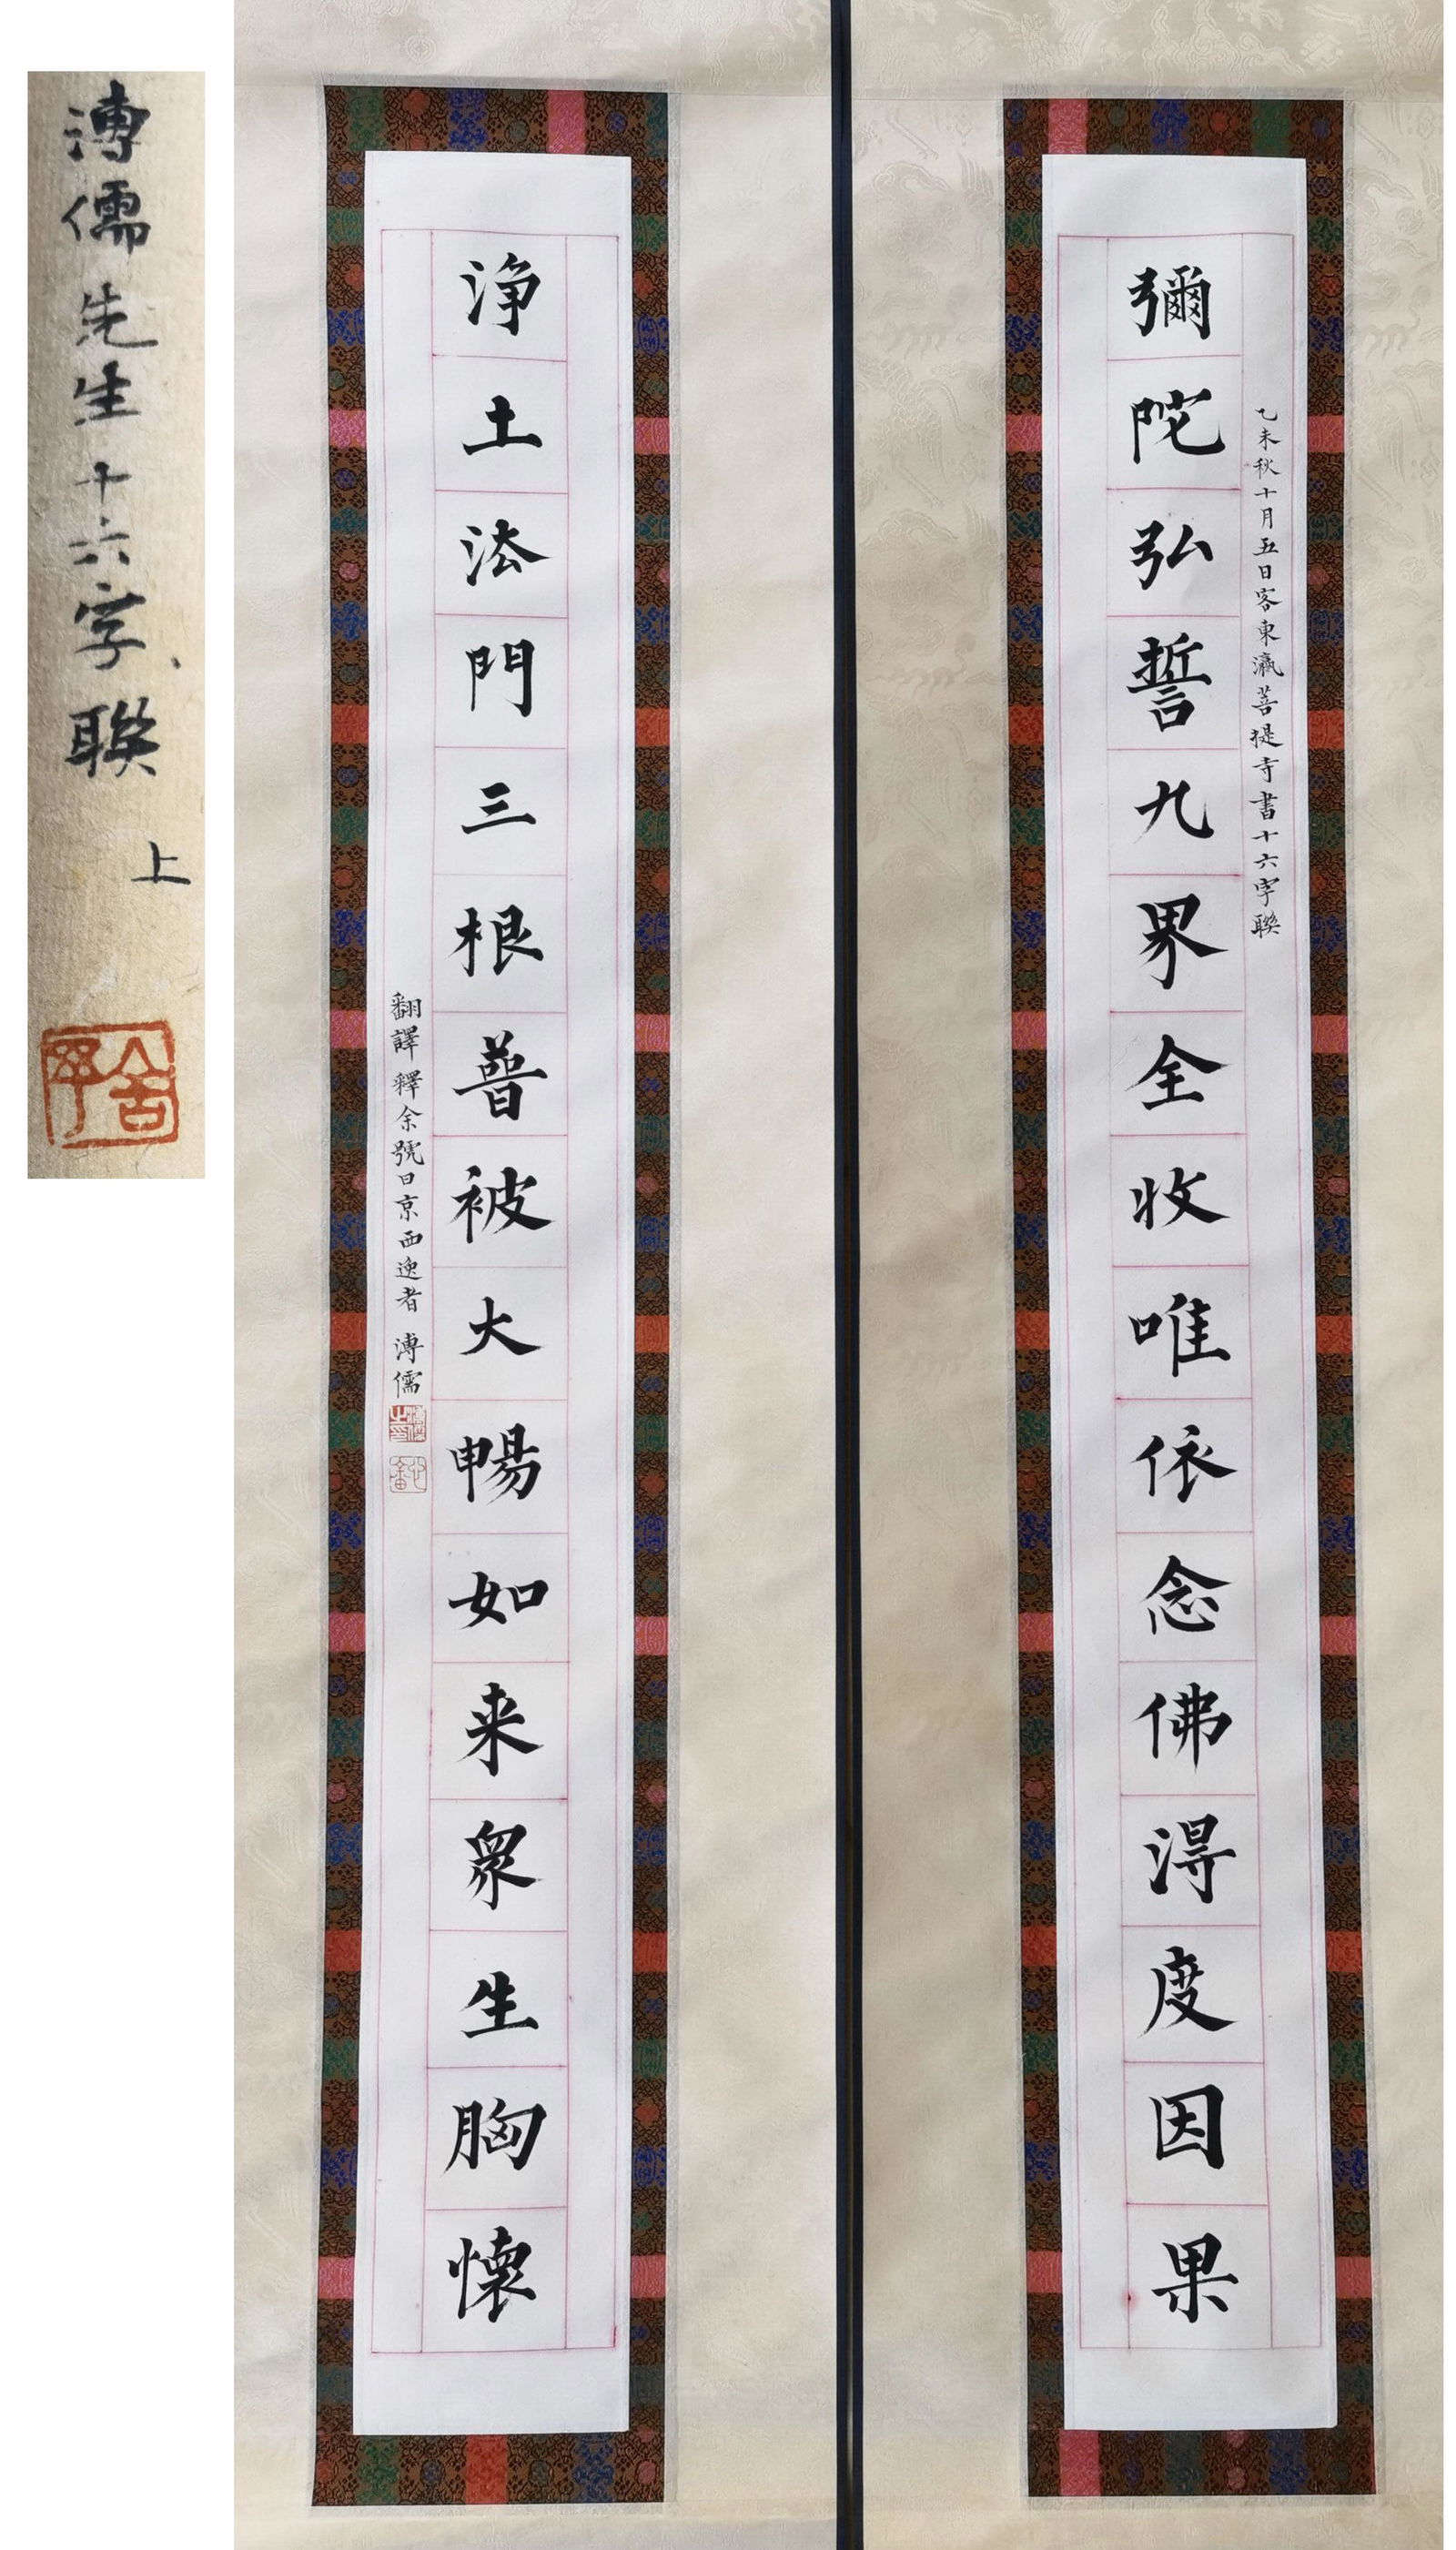 溥儒先生十六字聯 上
乙未秋十月五日客東瀛菩提寺書十六字聯
彌陀弘誓九界全收唯依念佛得度因果
浄土法門三根普被大暢如来衆生胸懷
翻譯釋余號曰京西逸者 溥儒